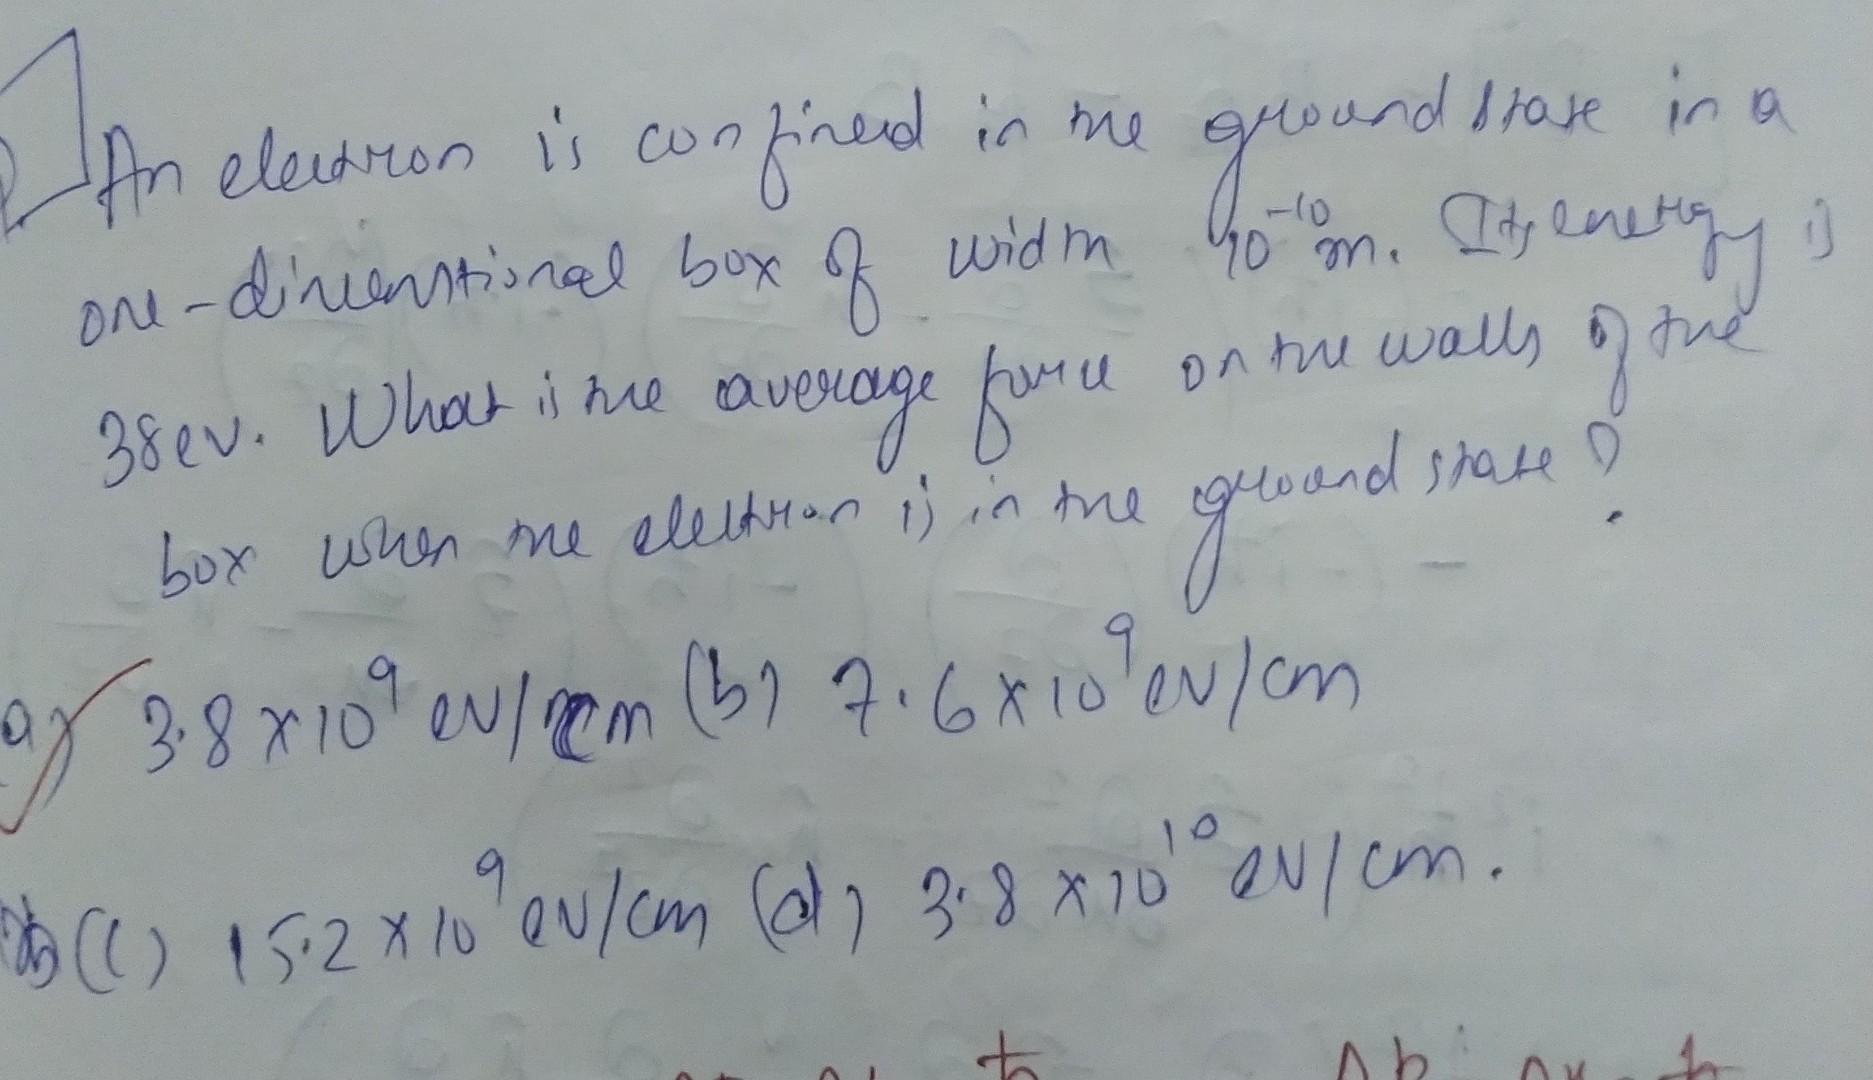 An electron is confined in the ground state in a
one-dimenstional box of width 10⁻¹⁰m. Its energy is
38ev. What is the average force on the walls of the
box when the electron is in the ground state?
a) 3.8 x 10⁹ ev/cm (b) 7.6 x 10⁹ ev/cm
(c) 15.2 x 10⁹ ev/cm (d) 3.8 x 10¹⁰ ev/cm.